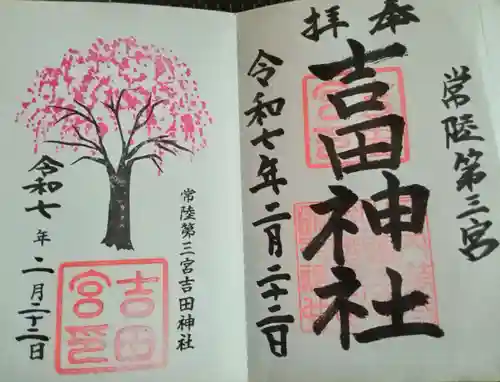 常陸第三宮
奉拝
吉田神社
令和七年二月二十二日
常陸第三宮吉田神社
令和七年二月二十二日
吉田
宮印